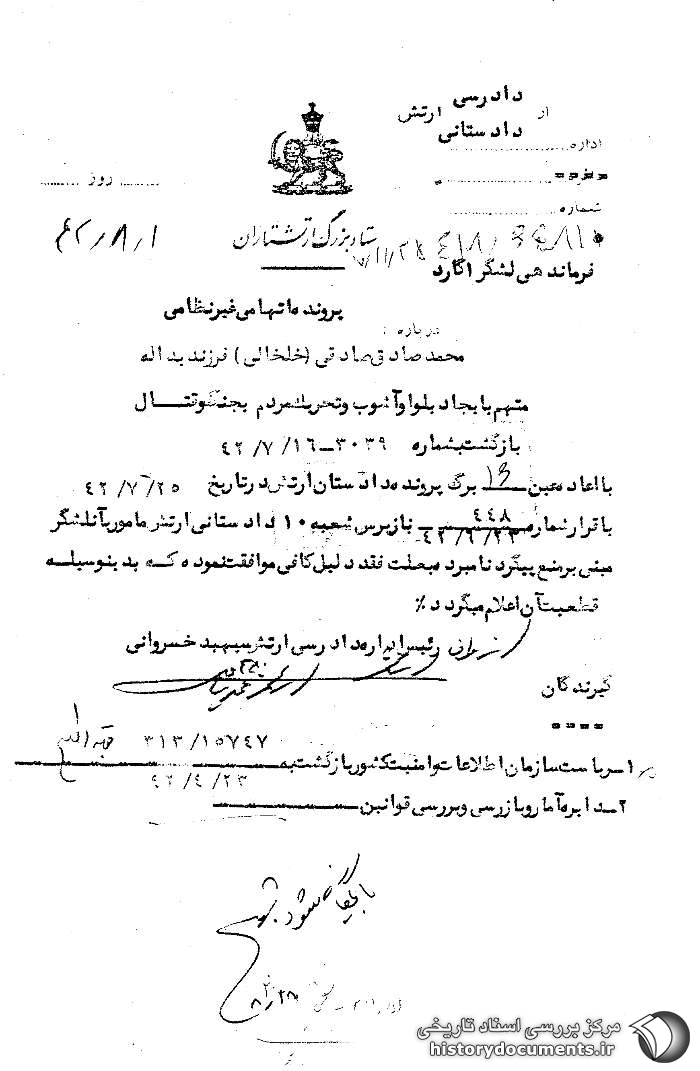 از دادرسی ارتش
دادستانی
اداره
شماره
روز
ستاد بزرگ ارتشتاران
۴۲/۸/۱
فرماندهی لشگر ۱ گارد
پرونده اتهامی غیرنظامی
درباره :
محمد صادق صادقی (خلخالی) فرزند یداله
متهم بایجاد بلوا و آشوب و تحریک مردم بجنگ و قتـــال
بازگشت بشماره ۳۰۳۹-۴۲/۷/۱۶
با اعاده عین ۱۳ برگ پرونده دادستان ارتش در تاریخ ۴۲/۷/۲۵
با قرار شماره ۴۴۸ ۴۲/۶/۲۳ بازپرس شعبه ۱۰ دادستانی ارتش مامور بآنلشگر
مبنی بر منع پیگرد نامبرده بعلت فقد دلیل کافی موافقت نموده که بدینوسیله
قطعیت آن اعلام میگردد٪
رئیس اداره دادرسی ارتش سپهبد خسروانی
گیرندگان
۱- ریاست سازمان اطلاعات و امنیت کشور بازگشت به ۳۱۳/۱۵۷۴۷
۴۲/۴/۲۳
۲- دایره آمار و بازرسی و بررسی قوانین
بایگانی شود
مرکز بررسی اسناد تاریخی
historydocuments.ir